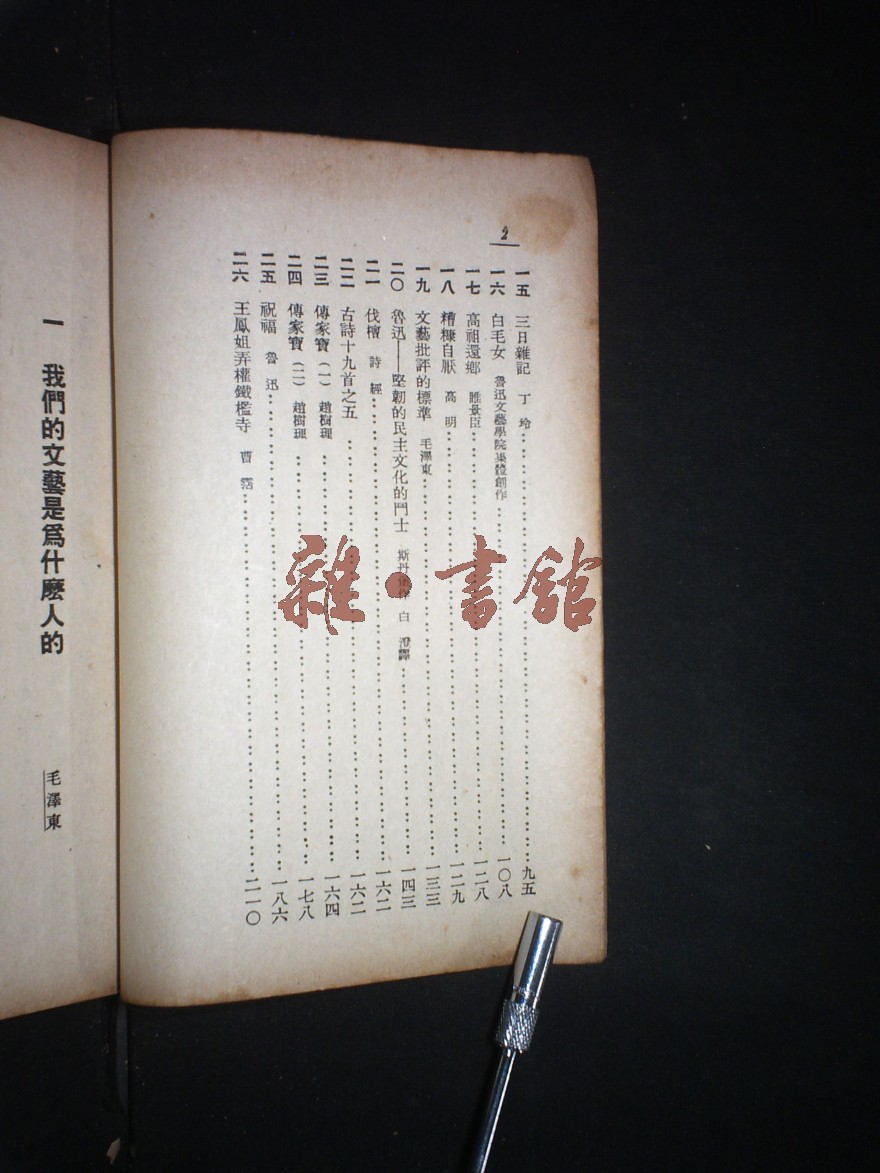 2
一五 三日雜記 丁 玲 九五
一六 白毛女 魯迅文藝學院集體創作 一〇八
一七 高祖還鄉 睢景臣 一二八
一八 糟糠自厭 高 明 一二九
一九 文藝批評的標準 毛澤東 一三三
二〇 魯迅——堅韌的民主文化的鬥士 斯丹 作 白 澄譯 一四三
二一 伐檀 詩 經 一六二
二二 古詩十九首之五 一六二
二三 傳家寶(一) 趙樹理 一六四
二四 傳家寶(二) 趙樹理 一七八
二五 祝福 魯 迅 一八六
二六 王鳳姐弄權鐵檻寺 曹 霑 二一〇
一 我們的文藝是爲什麽人的
毛澤東
雜·書舘